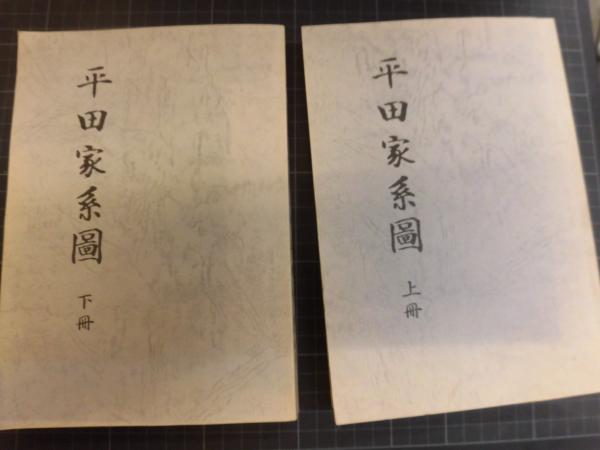 平田家系圖
上冊
平田家系圖
下冊